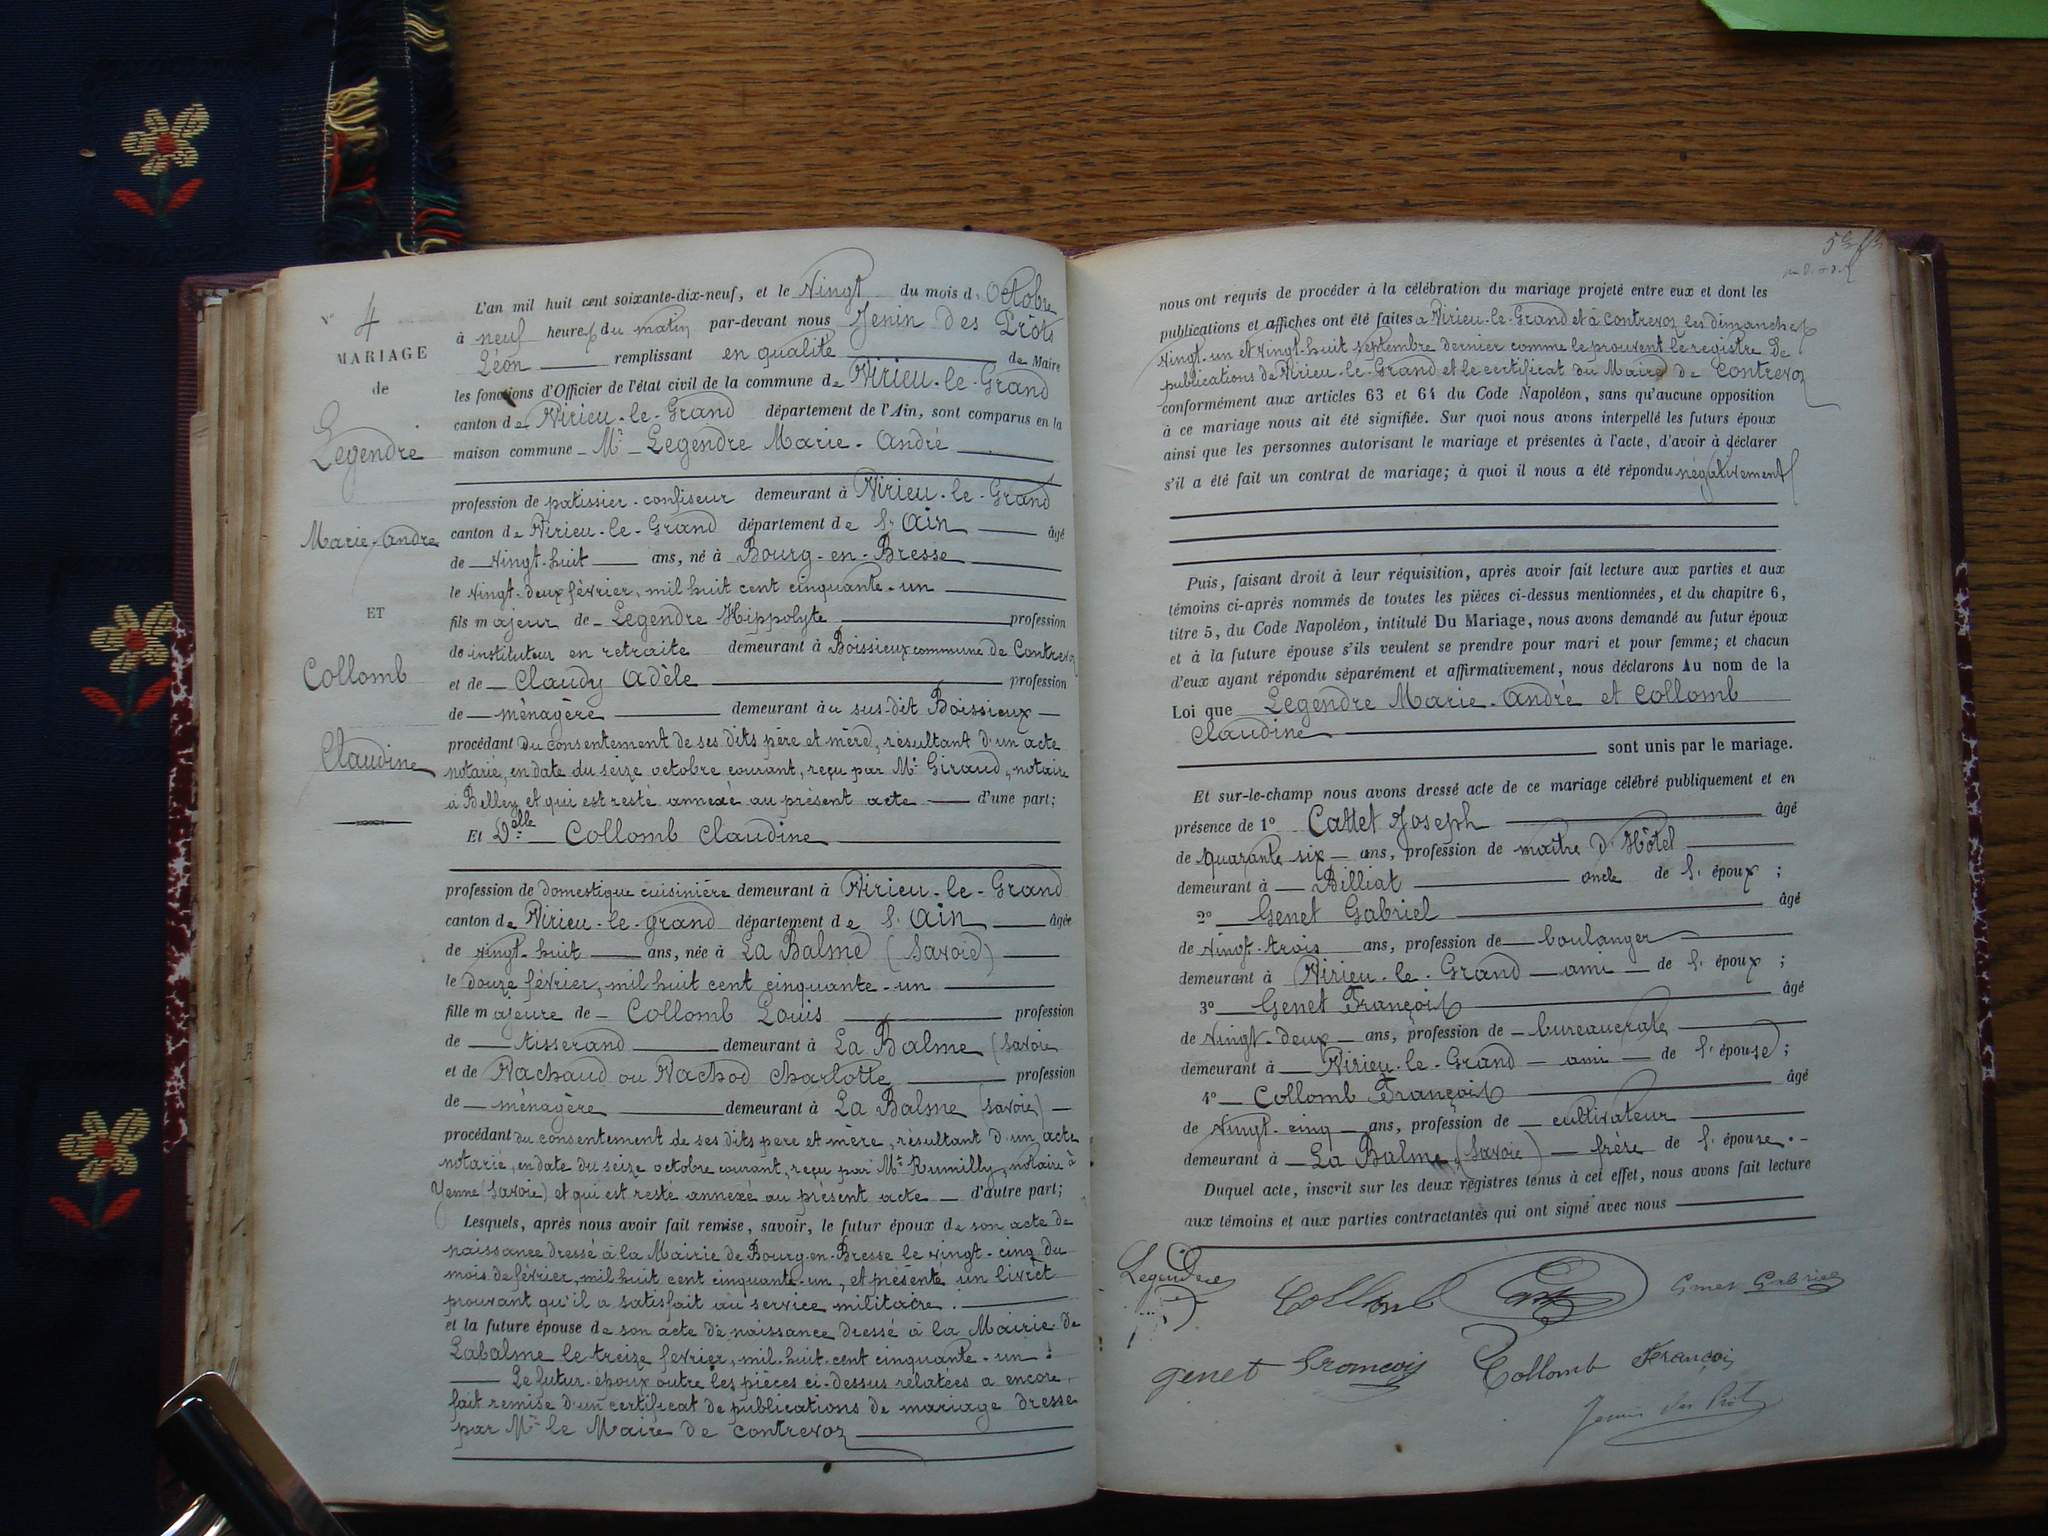 N° 4
MARIAGE
de
Legendre
Marie-André
ET
Collomb
Claudine
L'an mil huit cent soixante-dix-neuf, et le Vingt du mois d'Octobre
à neuf heures du matin par-devant nous Jenin des Prôts
Léon remplissant en qualité de Maire
les fonctions d'Officier de l'état civil de la commune de Virieu-le-Grand
canton de Virieu-le-Grand département de l'Ain, sont comparus en la
maison commune Mr Legendre Marie-André
profession de patissier-confiseur demeurant à Virieu-le-Grand
canton de Virieu-le-Grand département de l'Ain âgé
de Vingt-huit ans, né à Bourg-en-Bresse
le Vingt-deux février, mil huit cent cinquante-un
fils majeur de Legendre Hippolyte profession
de instituteur en retraite demeurant à Boissieux commune de Contrevoz
et de Claudy Adèle profession
de ménagère demeurant au sus-dit Boissieux
procédant du consentement de ses dits père et mère, résultant d'un acte
notarié, en date du seize octobre courant, reçu par Me Giraud, notaire
à Belley et qui est resté annexé au présent acte d'une part;
Et Delle Collomb Claudine
profession de domestique cuisinière demeurant à Virieu-le-Grand
canton de Virieu-le-grand département de l'Ain âgée
de vingt-huit ans, née à La Balme (Savoie)
le douze février, mil huit cent cinquante-un
fille majeure de Collomb Louis profession
de tisserand demeurant à La Balme (Savoie
et de Vachaud ou Vachod Charlotte profession
de ménagère demeurant à La Balme (Savoie)
procédant du consentement de ses dits père et mère, résultant d'un acte
notarié, en date du seize octobre courant, reçu par Me Rumilly, notaire à
Yenne (Savoie) et qui est resté annexé au présent acte d'autre part;
Lesquels, après nous avoir fait remise, savoir, le futur époux de son acte de
naissance dressé à la Mairie de Bourg-en-Bresse le vingt-cinq du
mois de février, mil huit cent cinquante-un, et présenté un livrèt
prouvant qu'il a satisfait au service militaire.
et la future épouse de son acte de naissance dressé à la Mairie de
Labalme le treize fevrier, mil-huit-cent cinquante-un.
Le futur-époux outre les pièces ci-dessus relatées a encore,
fait remise d'un certificat de publications de mariage dressé
par Mr le Maire de Contrevoz
nous ont requis de procéder à la célébration du mariage projeté entre eux et dont les
publications et affiches ont été faites à Virieu-le-Grand et à Contrevoz les dimanches
vingt-un et vingt-huit septembre dernier comme le prouvent le registre de
publications de Virieu-le-Grand et le certificat du Maire de Contrevoz
conformément aux articles 63 et 64 du Code Napoléon, sans qu'aucune opposition
à ce mariage nous ait été signifiée. Sur quoi nous avons interpellé les futurs époux
ainsi que les personnes autorisant le mariage et présentes à l'acte, d'avoir à déclarer
s'il a été fait un contrat de mariage; à quoi il nous a été répondu négativement
Puis, faisant droit à leur réquisition, après avoir fait lecture aux parties et aux
témoins ci-après nommés de toutes les pièces ci-dessus mentionnées, et du chapitre 6,
titre 5, du Code Napoléon, intitulé Du Mariage, nous avons demandé au futur époux
et à la future épouse s'ils veulent se prendre pour mari et pour femme; et chacun
d'eux ayant répondu séparément et affirmativement, nous déclarons Au nom de la
Loi que Legendre Marie-André et Collomb
Claudine
sont unis par le mariage.
Et sur-le-champ nous avons dressé acte de ce mariage célébré publiquement et en
présence de 1° Cattet Joseph âgé
de quarante six ans, profession de maître d'Hôtel
demeurant à Billiat oncle de l'époux;
2° Genet Gabriel âgé
de Vingt-trois ans, profession de boulanger
demeurant à Virieu-le-Grand ami de l'époux;
3° Genet François âgé
de Vingt-deux ans, profession de bureaucrate
demeurant à Virieu-le-Grand ami de l'épouse;
4° Collomb François âgé
de Vingt-cinq ans, profession de cultivateur
demeurant à La Balme (Savoie) frère de l'épouse.
Duquel acte, inscrit sur les deux registres tenus à cet effet, nous avons fait lecture
aux témoins et aux parties contractantes qui ont signé avec nous
Legendre Collomb Genet Gabriel
genet François Collomb François
Jenin des Prôts